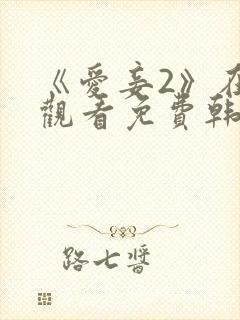 《愛妾2》在
觀看免費韓
路七醬